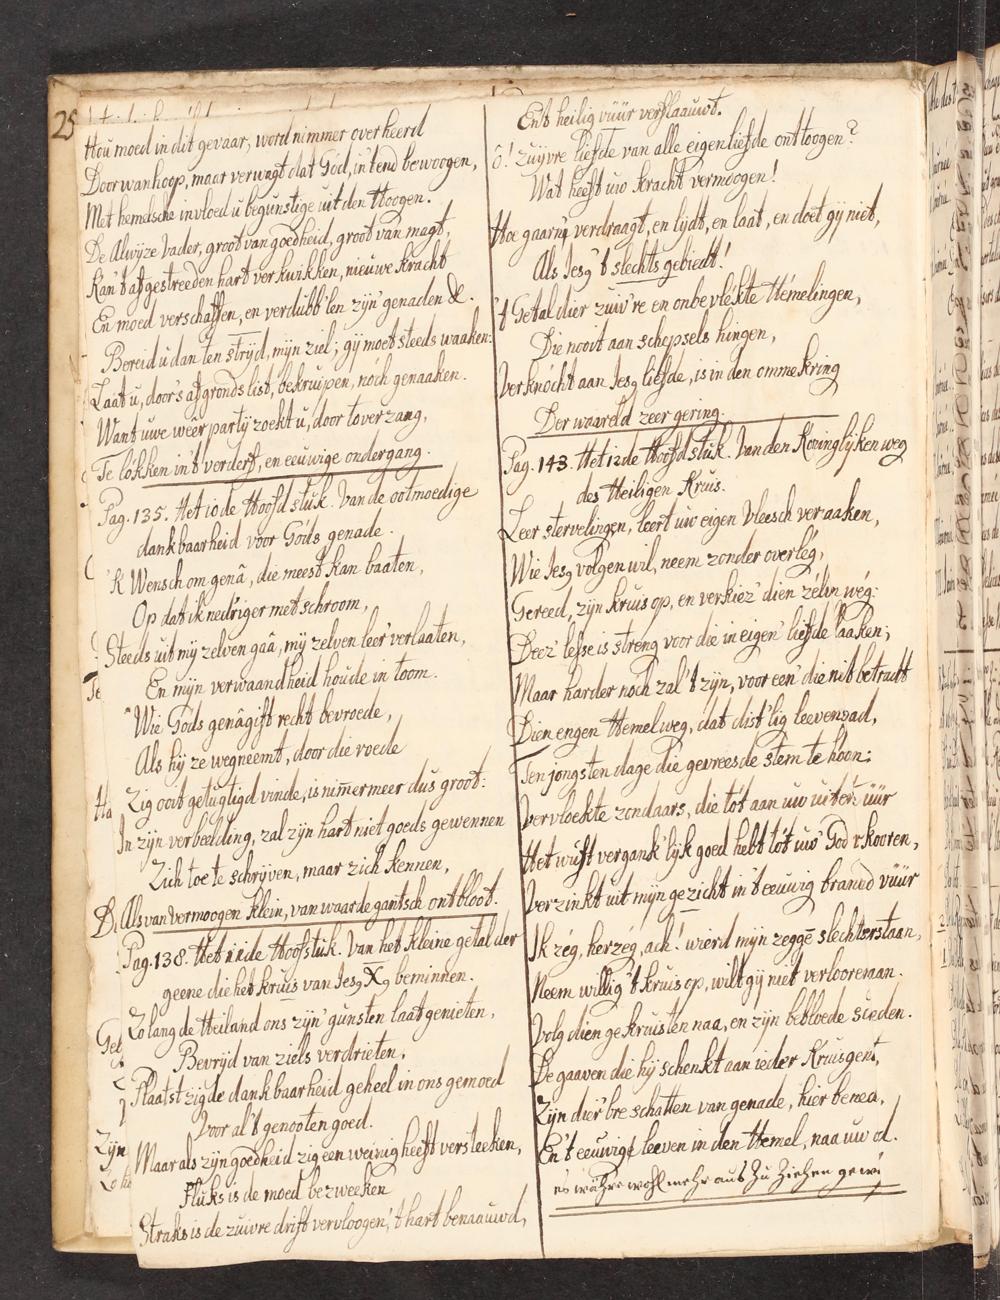 25
Hou moed in dit gevaar, word nimmer overheerd
Door wanhoop, maar verwagt dat God, in 'tend bewoogen,
Met hemelsche invloed u begunstige uit den Hoogen.
De Alwyze Vader, groot van goedheid, groot van magt,
Kan 't afgestreeden hart verkwikken, nieuwe kracht
En moed verschaffen, en verdubb'len zijn genaden &.
Bereid u dan ten strijd, mijn ziel; gij moet steeds waaken:
Laat u, door's afgronds list, bekruipen, nóch genaaken.
Want uwe wêer partij zoekt u, door toverzang,
Te lókken in 't verderf, en eeuwige ondergang.
Pag. 135. Het 10de Hoofdstuk. Van de ootmoedige
dankbaarheid voor Góds genade.
'K Wensch om genâ, die meest kan baaten,
Op dat ik nedriger met schroom,
Steeds uit mij zelven gaâ, mij zelven leer' verlaaten,
En mijn verwaandheid houde in toom.
Wie Góds genâgift recht bevroede,
Als hij ze wegneemt, door die roede
Zig ooit getugtigd vinde, is nimermeer dus groot:
In zijn verbeelding, zal zijn hart niet goeds gewennen
Zich toe te schrijven, maar zich kennen,
Als van vermoogen klein, van waarde gantsch ontbloot.
Pag. 138. Het 11de Hoofstuk. Van het kleine getal der
geene die het kruis van Jesg Xg beminnen.
Zo lang de Heiland ons zijn' gunsten laat genieten,
Bevrijd van ziels verdrieten,
Plaatst zig de dankbaarheid geheel in ons gemoed
Voor al 't genooten goed.
Maar als zijn goedheid zig een weinig heeft versteeken,
Fluks is de moed bezweeken
Straks is de zuivre drift vervloogen, 't hart benaauwd,
En't heilig vúúr verflaauwt.
ô! Zuijvre liefde van alle eigenliefde onttoogen?
Wat heeft uw kracht vermoogen!
Hoe gaarne verdraagt, en lijdt, en laat, en doet gij niet,
Als Jesg 't slechts gebiedt!
't Getal dier zuiv're en onbevlékte Hémelingen,
Die nooit aan schepsels hingen,
Verknócht aan Jesg liefde, is in den omme kring
Der waareld zeer gering.
Pag. 143. Het 12de Hoofdstuk. Van den Koninglijken weg
des Heiligen Kruis.
Leer stervelingen, leert uw eigen Vleesch veraaken,
Wie Jesg volgen wil, neem zonder overlég,
Gereed, zijn kruis op, en verkiez' dien zélvn wég:
Deez' lesse is streng voor die in eigen' liefde blaaken;
Maar harder noch zal 't zijn, voor een' die nit betradt
Dien engen Hemelweg, dat dist'lig leevenspad,
Ten jongsten dage die gevreesde stem te hoon:
Vervloekte zondaars, die tót aan uw uiterst' úúr
Het wuft vergank'lijk goed hebt tót uw' God v'kooren,
Verzinkt uit mijn gezicht in 't eeuwig brand vúúr
Ik zég, herzég, ach! wierd mijn zegge slechts verstaan,
Neem willig 't kruis op, wilt gij niet verlooren gaan.
Volg dien gekruisten naa, en zijn bebloede scheden.
De gaaven die hij schenkt aan ieder Kruisgent,
Zijn dier'bre schatten van genade, hier benea,
En 't eeuwige leeven in den Hemel, naa uw od.
es währe wohl mehr aus zu ziehen gewe